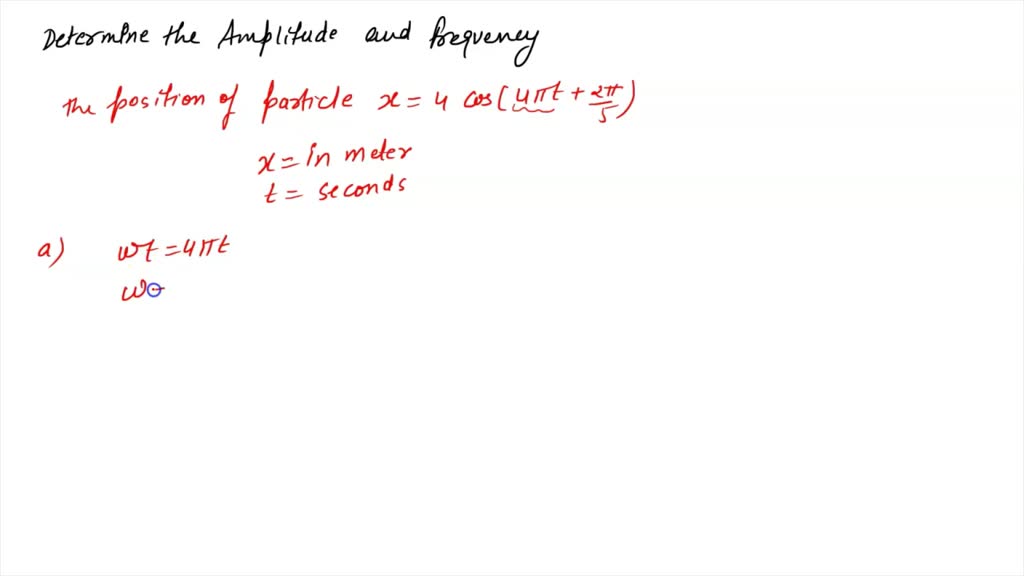 Determine the Amplitude and frequency
the position of particle x = 4 cos(4πt + 2π/5)
x = in meter
t = seconds
a) wt = 4πt
w